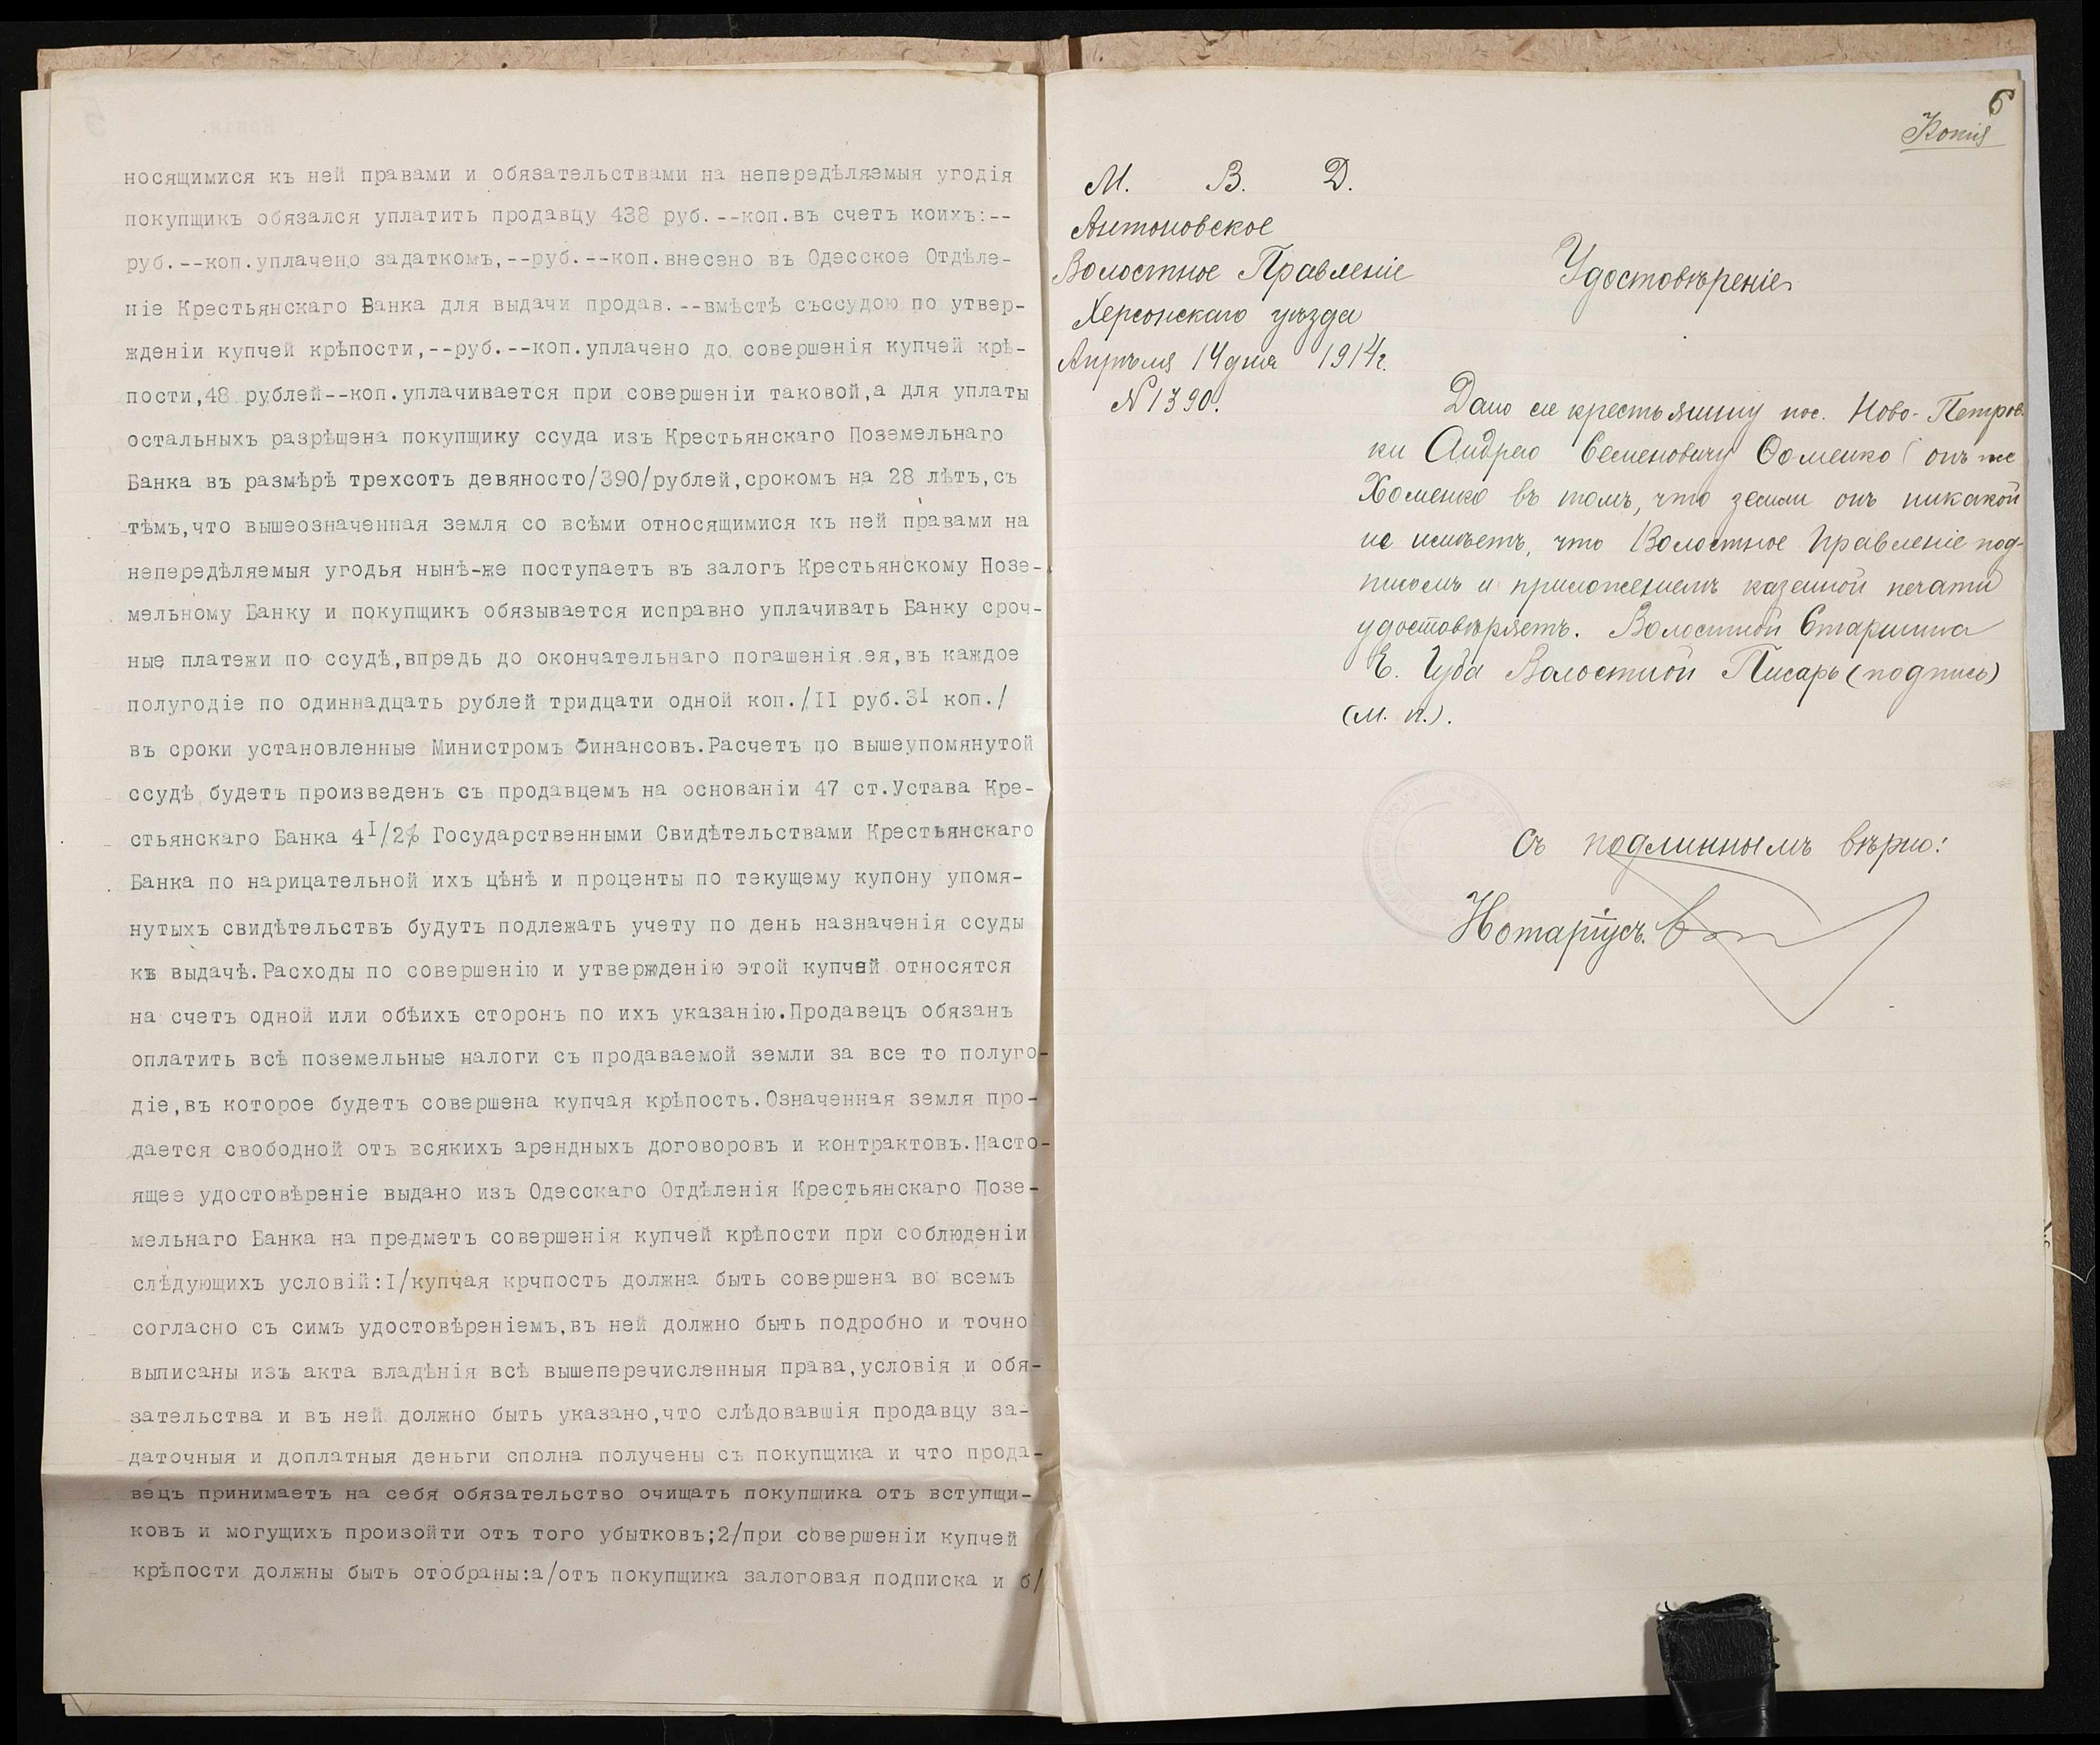 носящимися къ ней правами и обязательствами на непередѣляемыя угодія
покупщикъ обязался уплатить продавцу 438 руб.--коп.въ счетъ коихъ:--
руб.--коп.уплачено задаткомъ,--руб.--коп.внесено въ Одесское Отдѣле-
ніе Крестьянскаго Банка для выдачи продав.--вмѣстѣ съссудою по утвер-
жденіи купчей крѣпости,--руб.--коп.уплачено до совершенія купчей крѣ-
пости,48 рублей--коп.уплачивается при совершеніи таковой,а для уплаты
остальныхъ разрѣшена покупщику ссуда изъ Крестьянскаго Поземельнаго
Банка въ размѣрѣ трехсотъ девяносто/390/рублей,срокомъ на 28 лѣтъ,съ
тѣмъ,что вышеозначенная земля со всѣми относящимися къ ней правами на
непередѣляемыя угодья нынѣ-же поступаетъ въ залогъ Крестьянскому Позе-
мельному Банку и покупщикъ обязывается исправно уплачивать Банку сроч-
ные платежи по ссудѣ,впредь до окончательнаго погашенія ея,въ каждое
полугодіе по одиннадцать рублей тридцати одной коп./II руб.3I коп./
въ сроки установленные Министромъ Финансовъ.Расчетъ по вышеупомянутой
ссудѣ будетъ произведенъ съ продавцемъ на основаніи 47 ст.Устава Кре-
стьянскаго Банка 4I/2% Государственными Свидѣтельствами Крестьянскаго
Банка по нарицательной ихъ цѣнѣ и проценты по текущему купону упомя-
нутыхъ свидѣтельствъ будутъ подлежать учету по день назначенія ссуды
къ выдачѣ.Расходы по совершенію и утвержденію этой купчей относятся
на счетъ одной или обѣихъ сторонъ по ихъ указанію.Продавецъ обязанъ
оплатить всѣ поземельные налоги съ продаваемой земли за все то полуго-
діе,въ которое будетъ совершена купчая крѣпость.Означенная земля про-
дается свободной отъ всякихъ арендныхъ договоровъ и контрактовъ.Насто-
ящее удостовѣреніе выдано изъ Одесскаго Отдѣленія Крестьянскаго Позе-
мельнаго Банка на предметъ совершенія купчей крѣпости при соблюденіи
слѣдующихъ условій:I/купчая крчпость должна быть совершена во всемъ
согласно съ симъ удостовѣреніемъ,въ ней должно быть подробно и точно
выписаны изъ акта владѣнія всѣ вышеперечисленныя права,условія и обя-
зательства и въ ней должно быть указано,что слѣдовавшія продавцу за-
даточныя и доплатныя деньги сполна получены съ покупщика и что прода-
вецъ принимаетъ на себя обязательство очищать покупщика отъ вступщи-
ковъ и могущихъ произойти отъ того убытковъ;2/при совершеніи купчей
крѣпости должны быть отобраны:а/отъ покупщика залоговая подписка и б/
6
Копія
М. В. Д.
Антоновское
Волостное Правленіе
Херсонскаго уѣзда
Апрѣля 14 дня 1914г.
№ 1390.
Удостовѣреніе
Дано сіе крестьянину пос. Ново-Петров-
ки Андрею Семеновичу Фоменко (онъ же
Хоменко въ томъ, что земли онъ никакой
не имѣетъ, что Волостное Правленіе под-
писомъ и приложеніемъ казенной печати
удостовѣряетъ. Волостной Старшина
Е. Чуба Волостной Писарь (подпись)
(м. п.).
Съ подлиннымъ вѣрно:
Нотаріусъ.